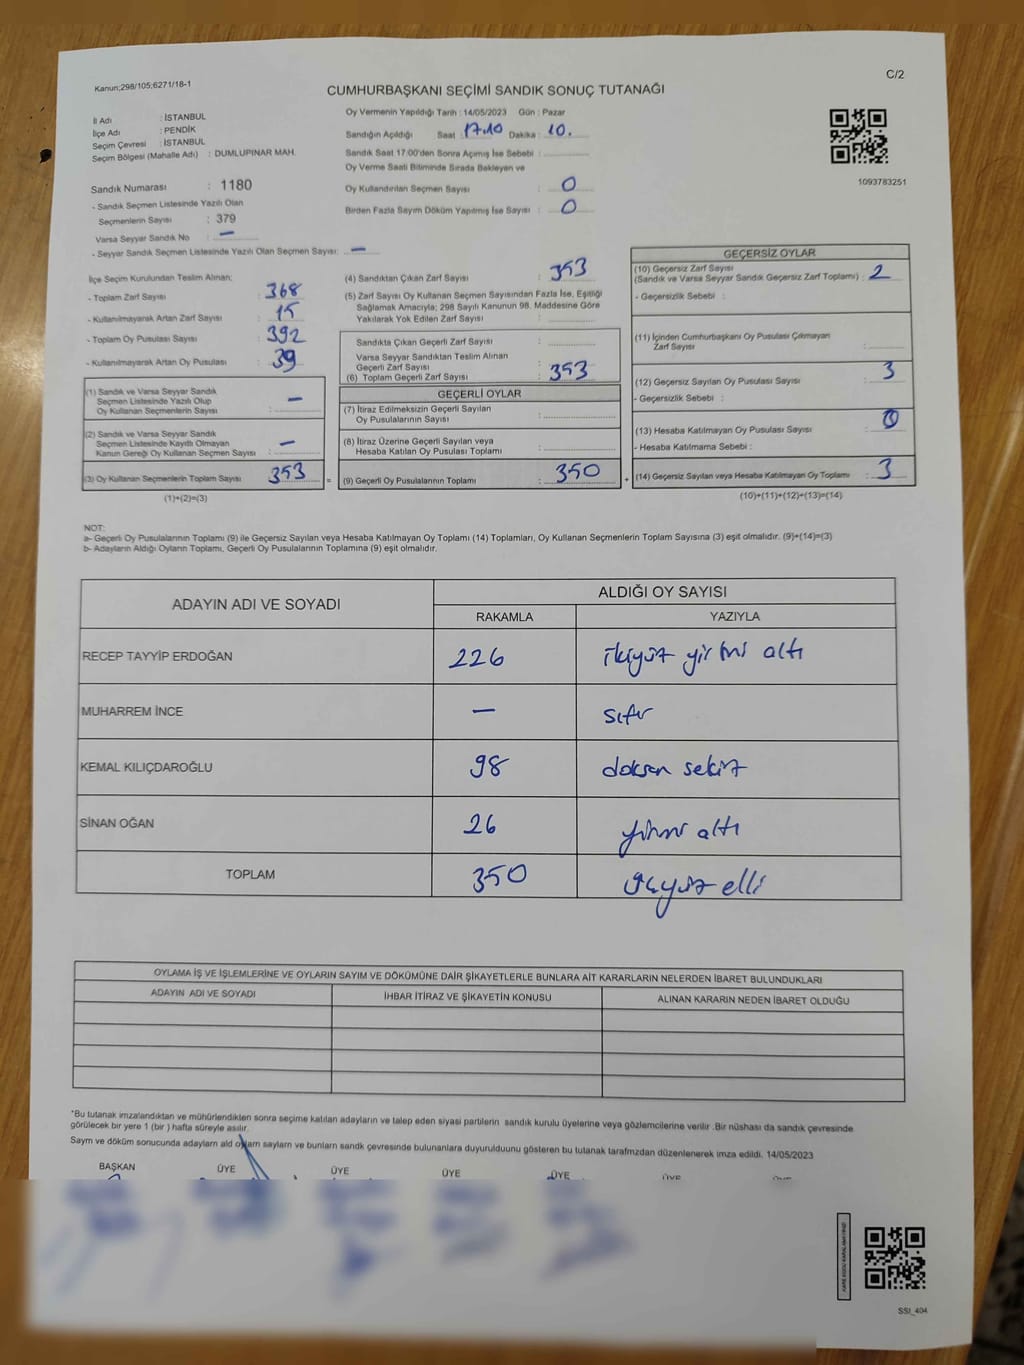 Kanun;298/105;6271/18-1
C/2
CUMHURBAŞKANI SEÇİMİ SANDIK SONUÇ TUTANAĞI
İl Adı : İSTANBUL
İlçe Adı : PENDİK
Seçim Çevresi : İSTANBUL
Seçim Bölgesi (Mahalle Adı) : DUMLUPINAR MAH.
Oy Vermenin Yapıldığı Tarih : 14/05/2023 Gün : Pazar
Sandığın Açıldığı Saat : 17.10 Dakika : 10.
Sandık Saat 17:00'den Sonra Açımış İse Sebebi :
Oy Verme Saati Bitiminde Sırada Bekleyen ve
Oy Kullandırılan Seçmen Sayısı : 0
Birden Fazla Sayım Döküm Yapılmış İse Sayısı : 0
1093783251
Sandık Numarası : 1180
- Sandık Seçmen Listesinde Yazılı Olan
Seçmenlerin Sayısı : 379
Varsa Seyyar Sandık No : —
- Seyyar Sandık Seçmen Listesinde Yazılı Olan Seçmen Sayısı: —
İlçe Seçim Kurulundan Teslim Alınan;
- Toplam Zarf Sayısı : 368
- Kullanılmayarak Artan Zarf Sayısı : 15
- Toplam Oy Pusulası Sayısı : 392
- Kullanılmayarak Artan Oy Pusulası : 39
(1) Sandık ve Varsa Seyyar Sandık
Seçmen Listesinde Yazılı Olup
Oy Kullanan Seçmenlerin Sayısı : —
(2) Sandık ve Varsa Seyyar Sandık
Seçmen Listesinde Kayıtlı Olmayan
Kanun Gereği Oy Kullanan Seçmen Sayısı : —
(3) Oy Kullanan Seçmenlerin Toplam Sayısı : 353
(1)+(2)=(3)
(4) Sandıktan Çıkan Zarf Sayısı : 353
(5) Zarf Sayısı Oy Kullanan Seçmen Sayısından Fazla İse, Eşitliği
Sağlamak Amacıyla; 298 Sayılı Kanunun 98. Maddesine Göre
Yakılarak Yok Edilen Zarf Sayısı :
Sandıkta Çıkan Geçerli Zarf Sayısı :
Varsa Seyyar Sandıktan Teslim Alınan
Geçerli Zarf Sayısı :
(6) Toplam Geçerli Zarf Sayısı : 353
GEÇERLİ OYLAR
(7) İtiraz Edilmeksizin Geçerli Sayılan
Oy Pusulalarının Sayısı :
(8) İtiraz Üzerine Geçerli Sayılan veya
Hesaba Katılan Oy Pusulası Toplamı :
= (9) Geçerli Oy Pusulalarının Toplamı : 350 +
GEÇERSİZ OYLAR
(10) Geçersiz Zarf Sayısı
(Sandık ve Varsa Seyyar Sandık Geçersiz Zarf Toplamı) : 2
- Geçersizlik Sebebi :
(11) İçinden Cumhurbaşkanı Oy Pusulası Çıkmayan
Zarf Sayısı :
(12) Geçersiz Sayılan Oy Pusulası Sayısı : 3
- Geçersizlik Sebebi :
(13) Hesaba Katılmayan Oy Pusulası Sayısı : 0
- Hesaba Katılmama Sebebi :
(14) Geçersiz Sayılan veya Hesaba Katılmayan Oy Toplamı : 3
(10)+(11)+(12)+(13)=(14)
NOT:
a- Geçerli Oy Pusulalarının Toplamı (9) ile Geçersiz Sayılan veya Hesaba Katılmayan Oy Toplamı (14) Toplamları, Oy Kullanan Seçmenlerin Toplam Sayısına (3) eşit olmalıdır. (9)+(14)=(3)
b- Adayların Aldığı Oyların Toplamı, Geçerli Oy Pusulalarının Toplamına (9) eşit olmalıdır.
ADAYIN ADI VE SOYADI
ALDIĞI OY SAYISI
RAKAMLA YAZIYLA
RECEP TAYYİP ERDOĞAN 226 ikiyüz yirmi altı
MUHARREM İNCE — sıfır
KEMAL KILIÇDAROĞLU 98 doksan sekiz
SİNAN OĞAN 26 yirmi altı
TOPLAM 350 üçyüz elli
OYLAMA İŞ VE İŞLEMLERİNE VE OYLARIN SAYIM VE DÖKÜMÜNE DAİR ŞİKAYETLERLE BUNLARA AİT KARARLARIN NELERDEN İBARET BULUNDUKLARI
ADAYIN ADI VE SOYADI İHBAR İTİRAZ VE ŞİKAYETİN KONUSU ALINAN KARARIN NEDEN İBARET OLDUĞU
*Bu tutanak imzalandıktan ve mühürlendikten sonra seçime katılan adayların ve talep eden siyasi partilerin sandık kurulu üyelerine veya gözlemcilerine verilir .Bir nüshası da sandık çevresinde
görülecek bir yere 1 (bir ) hafta süreyle asılır.
Saym ve döküm sonucunda adaylarn ald oylarn saylarn ve bunlarn sandk çevresinde bulunanlara duyurulduunu gösteren bu tutanak tarafmzdan düzenlenerek imza edildi. 14/05/2023
BAŞKAN ÜYE ÜYE ÜYE ÜYE ÜYE ÜYE
SSI_404